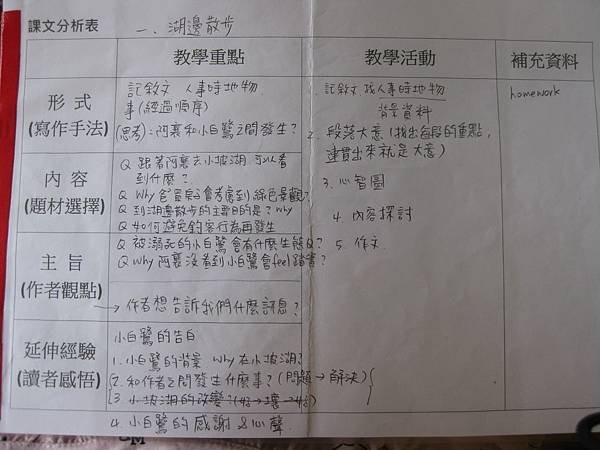 課文分析表
一、湖邊散步
教學重點
教學活動
補充資料
形式
(寫作手法)
記敘文 人事時地物
事(經過順序)
(思考):阿裏和小白鷺之間發生?
1. 記敘文.找人事時地物
背景資料
2. 段落大意(找出每段的重點,
連貫出來就是大意)
3. 心智圖
4. 內容探討
5. 作文
homework
內容
(題材選擇)
Q 跟著阿裏去小坡湖.可以看
到什麼?
Q Why爸買房子會考慮到綠色景觀?
Q 到湖邊散步的主要目的是? why
Q 如何避免釣客行為再發生
主旨
(作者觀點)
Q 被溺死的小白鷺會有什麼生態Q?
Q Why 阿裏沒看到小白鷺會feel踏實?
→ 作者想告訴我們什麼訊息?
延伸經驗
(讀者感悟)
小白鷺的告白
1. 小白鷺的背景 Why在小坡湖?
2. 和作者之間發生什麼事?(問題→解決)
3 小坡湖的改變?(好→壞→好)
4. 小白鷺的感謝&心聲.